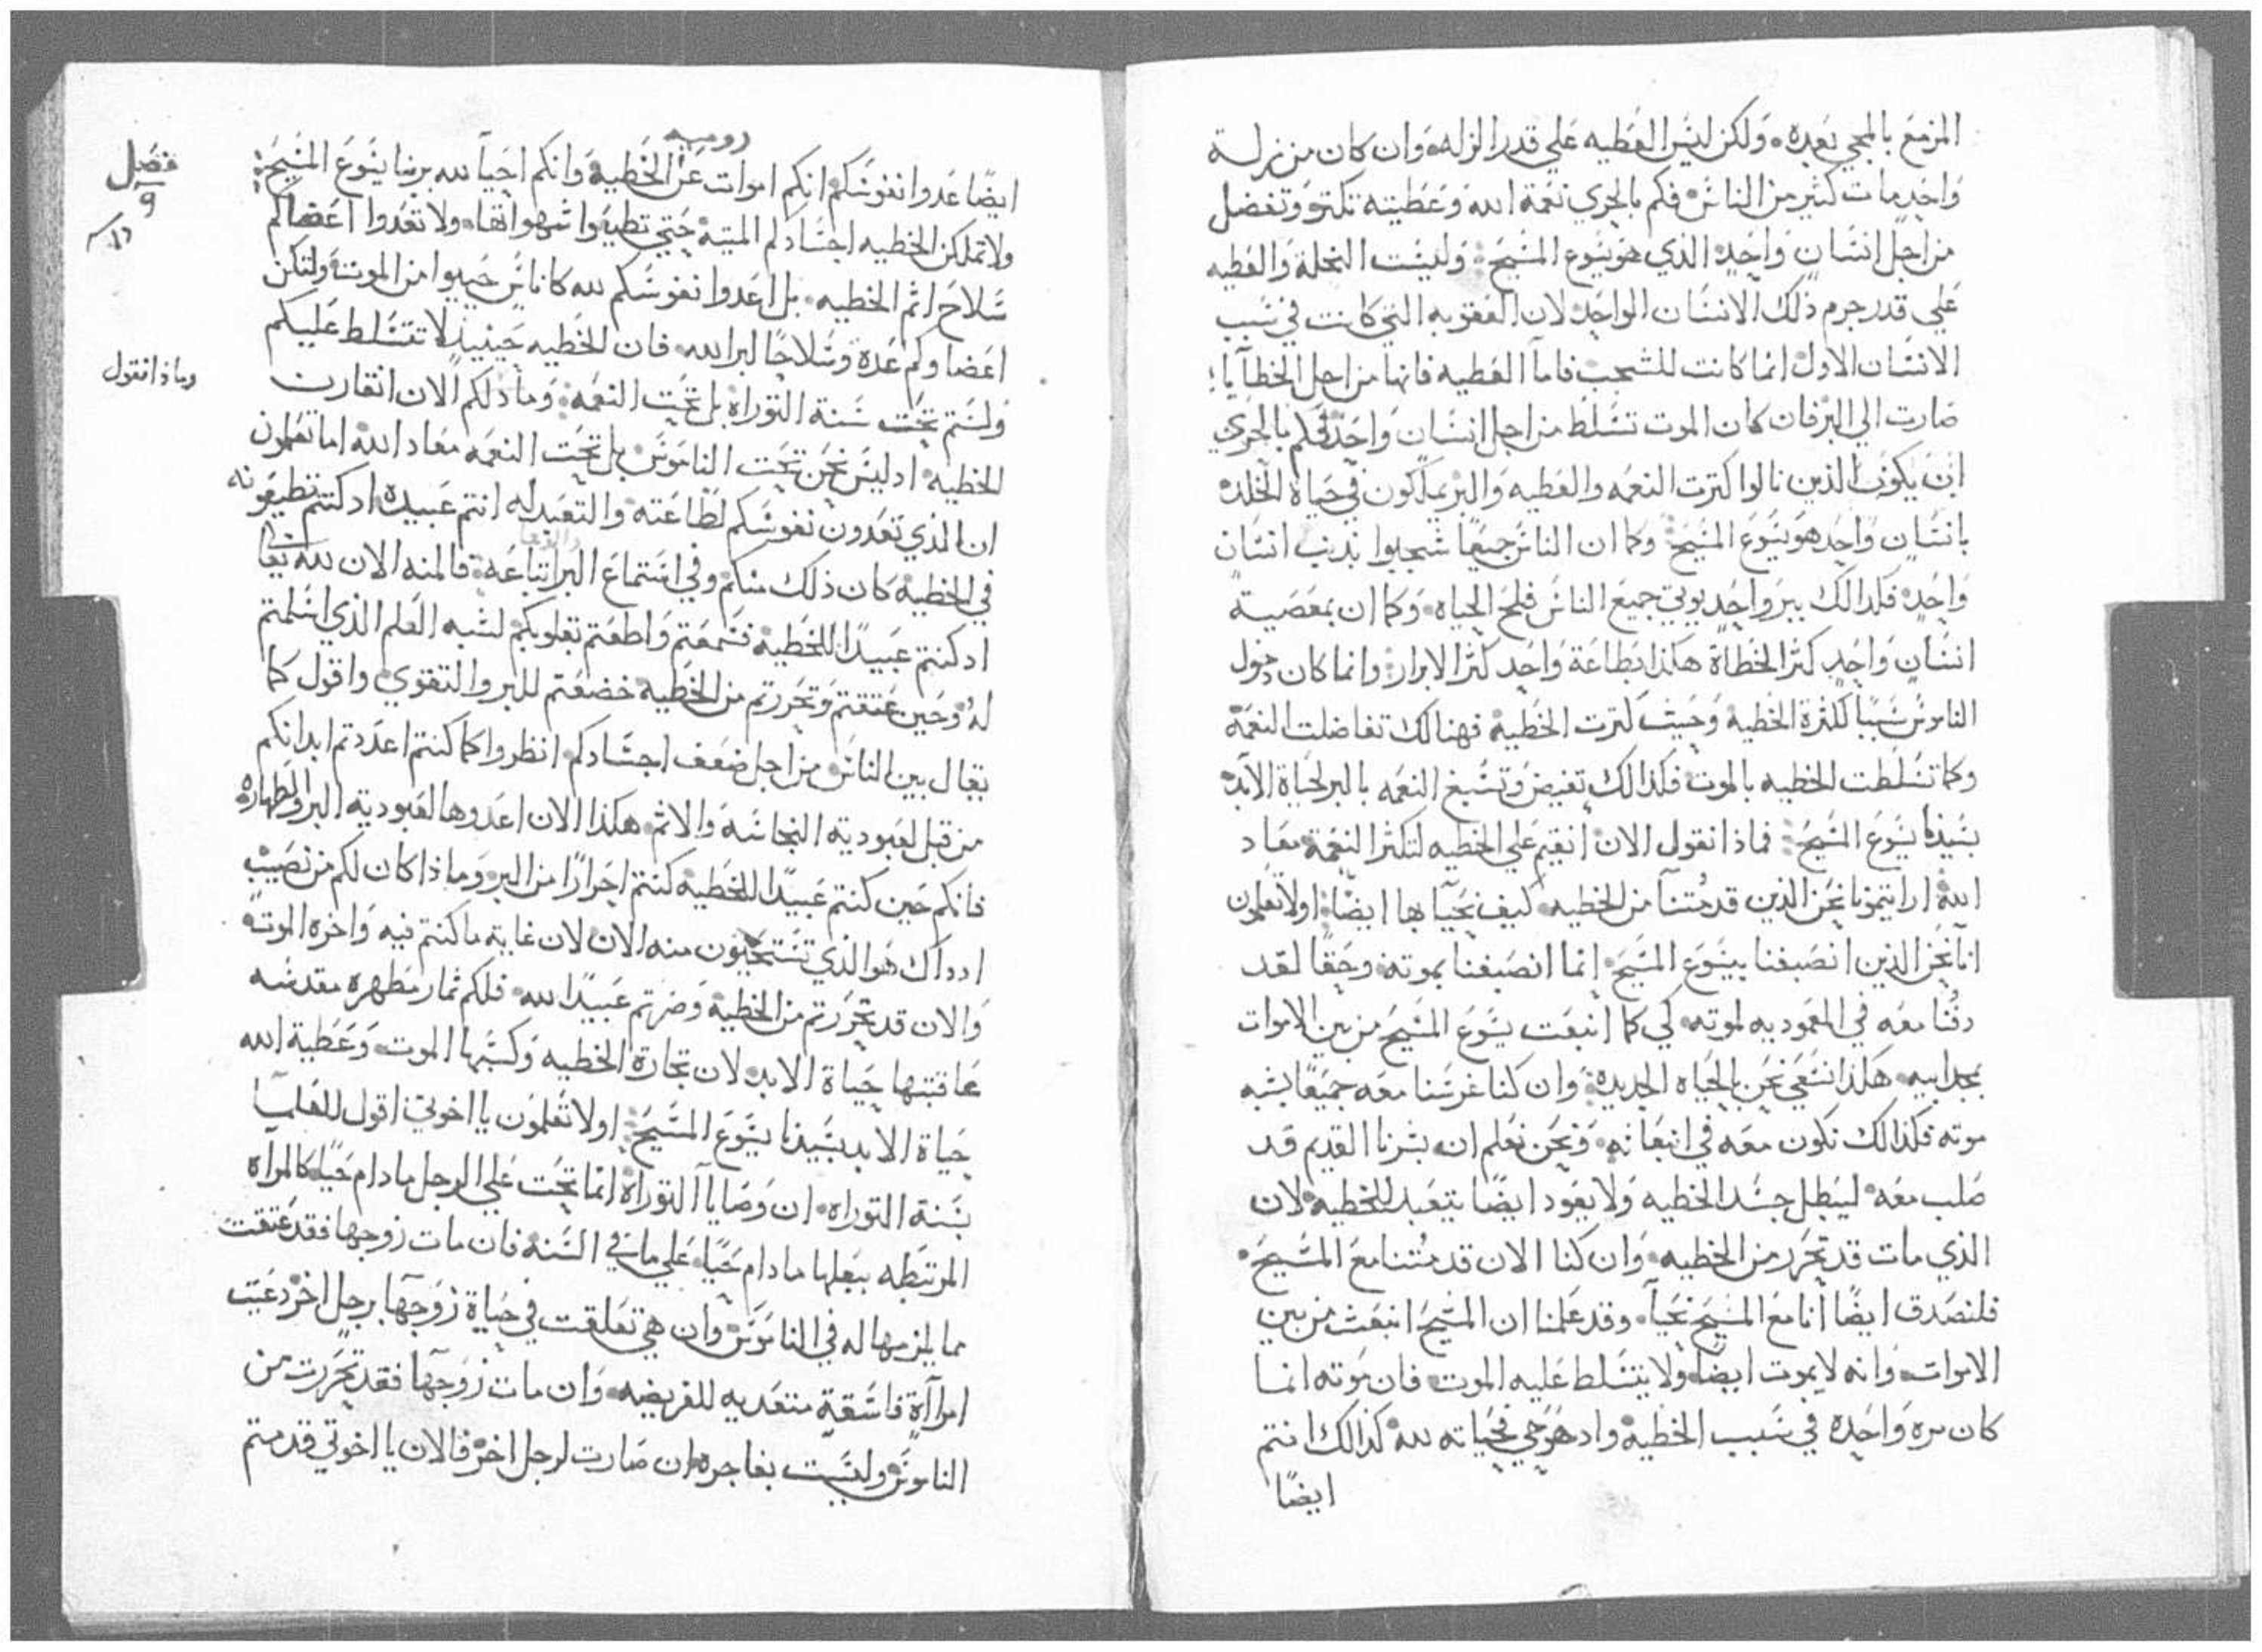 المزمع بالمجي بعده ولكن ليس العطيه علي قدر الزله وان كان من زلة
واحد مات كثير من الناس فكم بالحري نعمة الله وعطيته تكتر وتفضل
من اجل انسان واحد الذي هو يسوع المسيح وليست النحلة والعطيه
علي قدر جرم ذلك الانسان الواحد لان العقوبه التي كانت في سبب
الانسان الاول انما كانت للشجب فاما العطيه فانها من اجل الخطايا
صارت الي البر فان كان الموت تسلط من اجل انسان واحد فكم بالحري
ان يكون الذين نالوا كترت النعمه والعطيه والبر يملكون في حياة الخلد
بانسان واحد هو يسوع المسيح وكما ان الناس جميعا شجبوا بذنب انسان
واحد فكدالك ببر واحد يوتي جميع الناس فلج الحياه وكما ان بمعصية
انسان واحد كثر الخطاة هكذا بطاعة واحد كثر الابرار وانما كان دخول
الناموس سببا لكثرة الخطيه وحيث كترت الخطية فهنالك تفاضلت النعمة
وكما تسلطت الخطيه بالموت فكذالك تفيض وتسبغ النعمه بالبر لحياة الابد
بسيدنا يسوع المسيح فماذا نقول الان انقيم علي الخطيه لتكثر النعمة معاد
الله ارايتمونا نحن الذين قد متنا من الخطيه كيف نحيا بها ايضا اولا تعلمون
انا نحن الذين انصبغنا بيسوع المسيح انما انصبغنا بموته وحقا لقد
دفنا معه في المعموديه لموته لكي كما انبعت يسوع المسيح من بين الاموات
بمجد ابيه هكذا نسعي نحن بالحياه الجديدة وان كنا غرسنا معه جميعا بشبه
موته فكذالك نكون معه في انبعاثه ونحن نعلم ان بشرنا القديم قد
صلب معه ليبطل جسد الخطيه ولا يعود ايضا يتعبد للخطيه لان
الذي مات قد تحرر من الخطيه وان كنا الان قد متنا مع المسيح
فلنصدق ايضا انا مع المسيح نحيا وقد علمنا ان المسيح انبعث من بين
الاموات وانه لا يموت ايضا ولا يتسلط عليه الموت فان موته انما
كان مره واحده في سبب الخطية واد هو حي فحياته لله كذالك انتم
ايضا
روميه
ايضا عدوا نفوسكم انكم اموات عن الخطية وانكم احيا لله بربنا يسوع المسيح
ولا تملكن الخطيه اجسادكم الميتة حتي تطيعوا شهواتها ولا تعدوا اعضاكم
سلاح اثم الخطيه بل اعدوا نفوسكم لله كاناس حيوا من الموت ولتكن
اعضاوكم عدة وسلاحا لبر الله فان الخطيه حينيد لا تتسلط عليكم
ولستم تحت سنة التوراه بل تحت النعمه وما دلكم الان انقارن
الخطيه اد ليس نحن تحت الناموس بل تحت النعمه معاد الله اما تعلمون
ان الذي تعدون نفوسكم لطاعته والتعبد له انتم عبيده اد كنتم تطيعونه
في الخطية كان ذلك منكم وفي استماع البر اتباعه فالمنه الان لله
اد كنتم عبيدا للخطية فسمعتم واطعتم بقلوبكم لشبه العلم الذي اسلمتم
له وحين عتقتم وتحررتم من الخطية خضعتم للبر والتقوي واقول كما
يقال بين الناس من اجل ضعف اجسادكم انظروا كما كنتم اعددتم ابدانكم
من قبل لعبودية النجاسه والاثم هكذا الان اعدوها لعبودية البر والطهاره
فانكم حين كنتم عبيدا للخطية كنتم احرارا من البر وماذا كان لكم من نصيب
ادداك هو الذي تستحيون منه الان لان غاية ما كنتم فيه واخره الموت
والان قد تحررتم من الخطية وصرتم عبيدا لله فلكم ثمار مطهره مقدسه
عاقبتها حياة الابد لان تجارة الخطيه وكسبها الموت وعطية الله
حياة الابد بسيدنا يسوع المسيح اولا تعلمون يا اخوتي اقول للعلما
بسنة التوراه ان وصايا التوراة انما تجب علي الرجل ما دام حيا كالمراه
المرتبطه ببعلها ما دام حيا علي ما في السنة فان مات زوجها فقد عتقت
مما يلزمها له في الناموس وان هي تعلقت في حياة زوجها برجل اخر دعيت
امراة فاسقة متعديه للفريضه وان مات زوجها فقد تحررت من
الناموس وليست بفاجره ان صارت لرجل اخر فالان يا اخوتي قد متم
فصل
٩
وماذا نقول